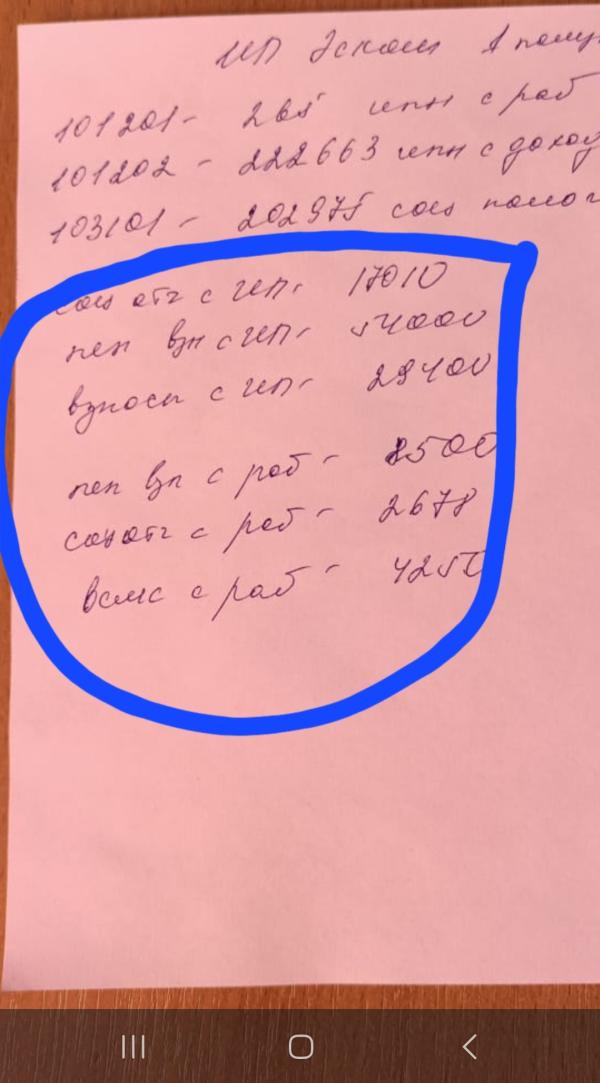 ИП Эском 1 полу
101201- 265 ипн с раб
101202 - 222663 ипн с доход
103101 - 202975 соц налог
соц отч с ИП- 17010
пен взн с ИП- 54000
взносы с ИП- 29400
пен взн с раб - 8500
соц отч с раб - 2678
всмс с раб - 4250